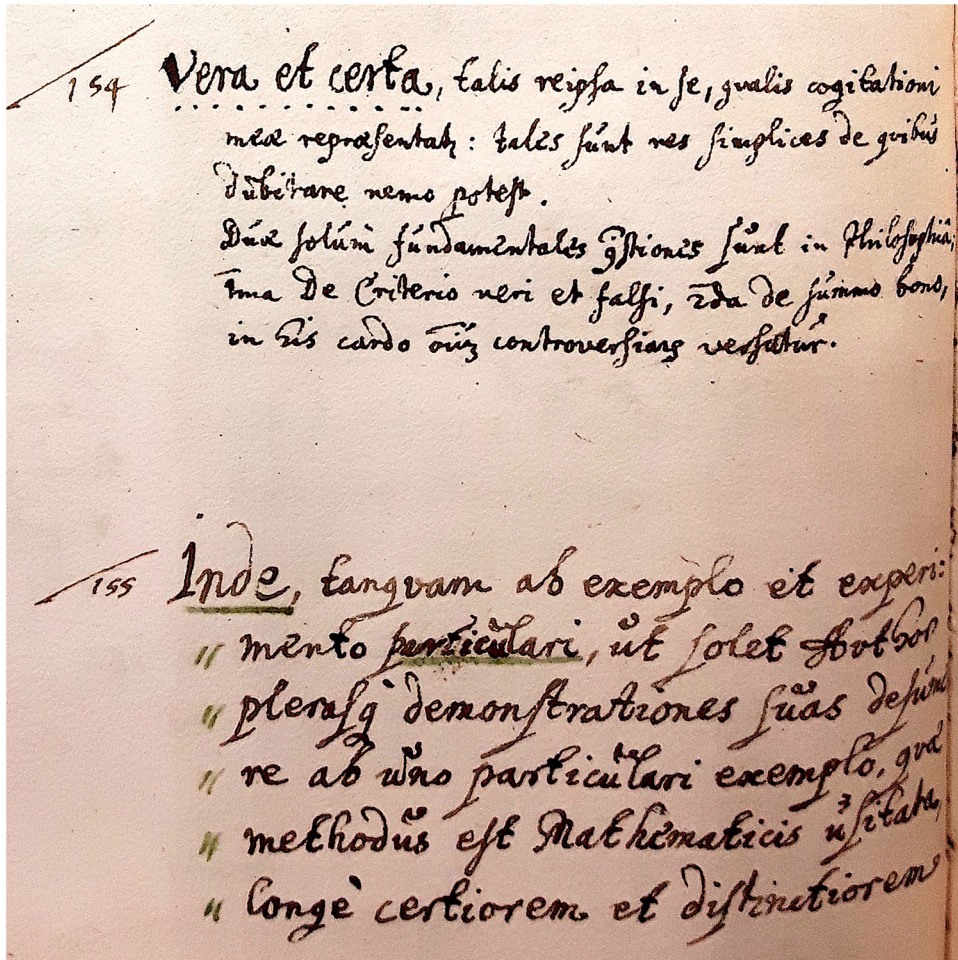 154 Vera et certa, talis reipsa in se, qvalis cogitationi
meæ repræsentatꝫ : tales sunt res simplices de qvibus
dubitare nemo potest.
Duæ solum fundamentales qstiones sunt in Philosophiâ,
1ma De Criterio veri et falsi, 2da de summo bono,
in his cardo oium controversiaꝝ versatur.
155 Inde, tanqvam ab exemplo et experi:
" mento particulari, ut solet Author
" plerasq demonstrationes suas desume
" re ab uno particulari exemplo, qvæ
" methodus est Mathematicis usitata,
" longè certiorem et distinctiorem